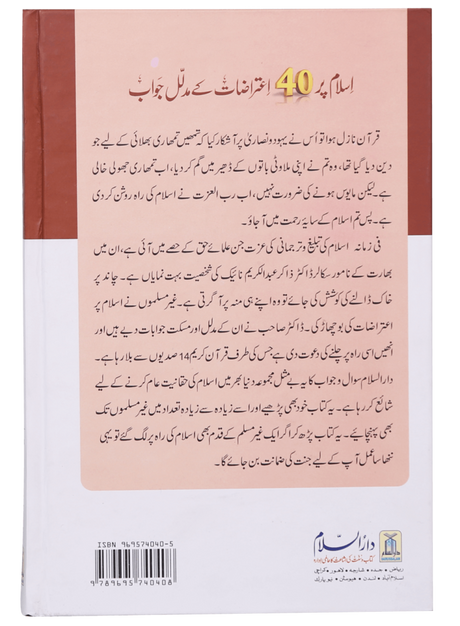 اسلام پر 40 اعتراضات کے مدلل جواب
قرآن نازل ہوا تو اُس نے یہود و نصاریٰ پر آشکار کیا کہ تمھیں تمھاری بھلائی کے لیے جو
دین دیا گیا تھا، وہ تم نے اپنی ملاوٹی باتوں کے ڈھیر میں گم کر دیا، اب تمھاری جھولی خالی
ہے۔ لیکن مایوس ہونے کی ضرورت نہیں، اب رب العزت نے اسلام کی راہ روشن کر دی
ہے۔ پس تم اسلام کے سایۂ رحمت میں آ جاؤ۔
فی زمانہ اسلام کی تبلیغ و ترجمانی کی عزت جن علمائے حق کے حصے میں آئی ہے، ان میں
بھارت کے نامور سکالر ڈاکٹر ذاکر عبدالکریم نائیک کی شخصیت بہت نمایاں ہے۔ چاند پر
خاک ڈالنے کی کوشش کی جائے تو وہ اپنے ہی منہ پر آ گرتی ہے۔ غیر مسلموں نے اسلام پر
اعتراضات کی بوچھاڑ کی۔ ڈاکٹر صاحب نے ان کے مدلل اور مسکت جوابات دیے ہیں اور
انھیں اسی راہ پر چلنے کی دعوت دی ہے جس کی طرف قرآن کریم 14 صدیوں سے بلا رہا ہے۔
دارالسلام سوال و جواب کا یہ بے مثل مجموعہ دنیا بھر میں اسلام کی حقانیت عام کرنے کے لیے
شائع کر رہا ہے۔ یہ کتاب خود بھی پڑھیے اور اسے زیادہ سے زیادہ تعداد میں غیر مسلموں تک
بھی پہنچائیے۔ یہ کتاب پڑھ کر اگر ایک غیر مسلم کے قدم بھی اسلام کی راہ پر لگ گئے تو یہی
ننھا سا عمل آپ کے لیے جنت کی ضمانت بن جائے گا۔
ISBN 969574040-5
9 789695 740408
دارالسلام
کتاب و سنت کی اشاعت کا عالمی ادارہ
ریاض • جدہ • شارجہ • لاہور • کراچی
اسلام آباد • لندن • ہیوسٹن • نیویارک